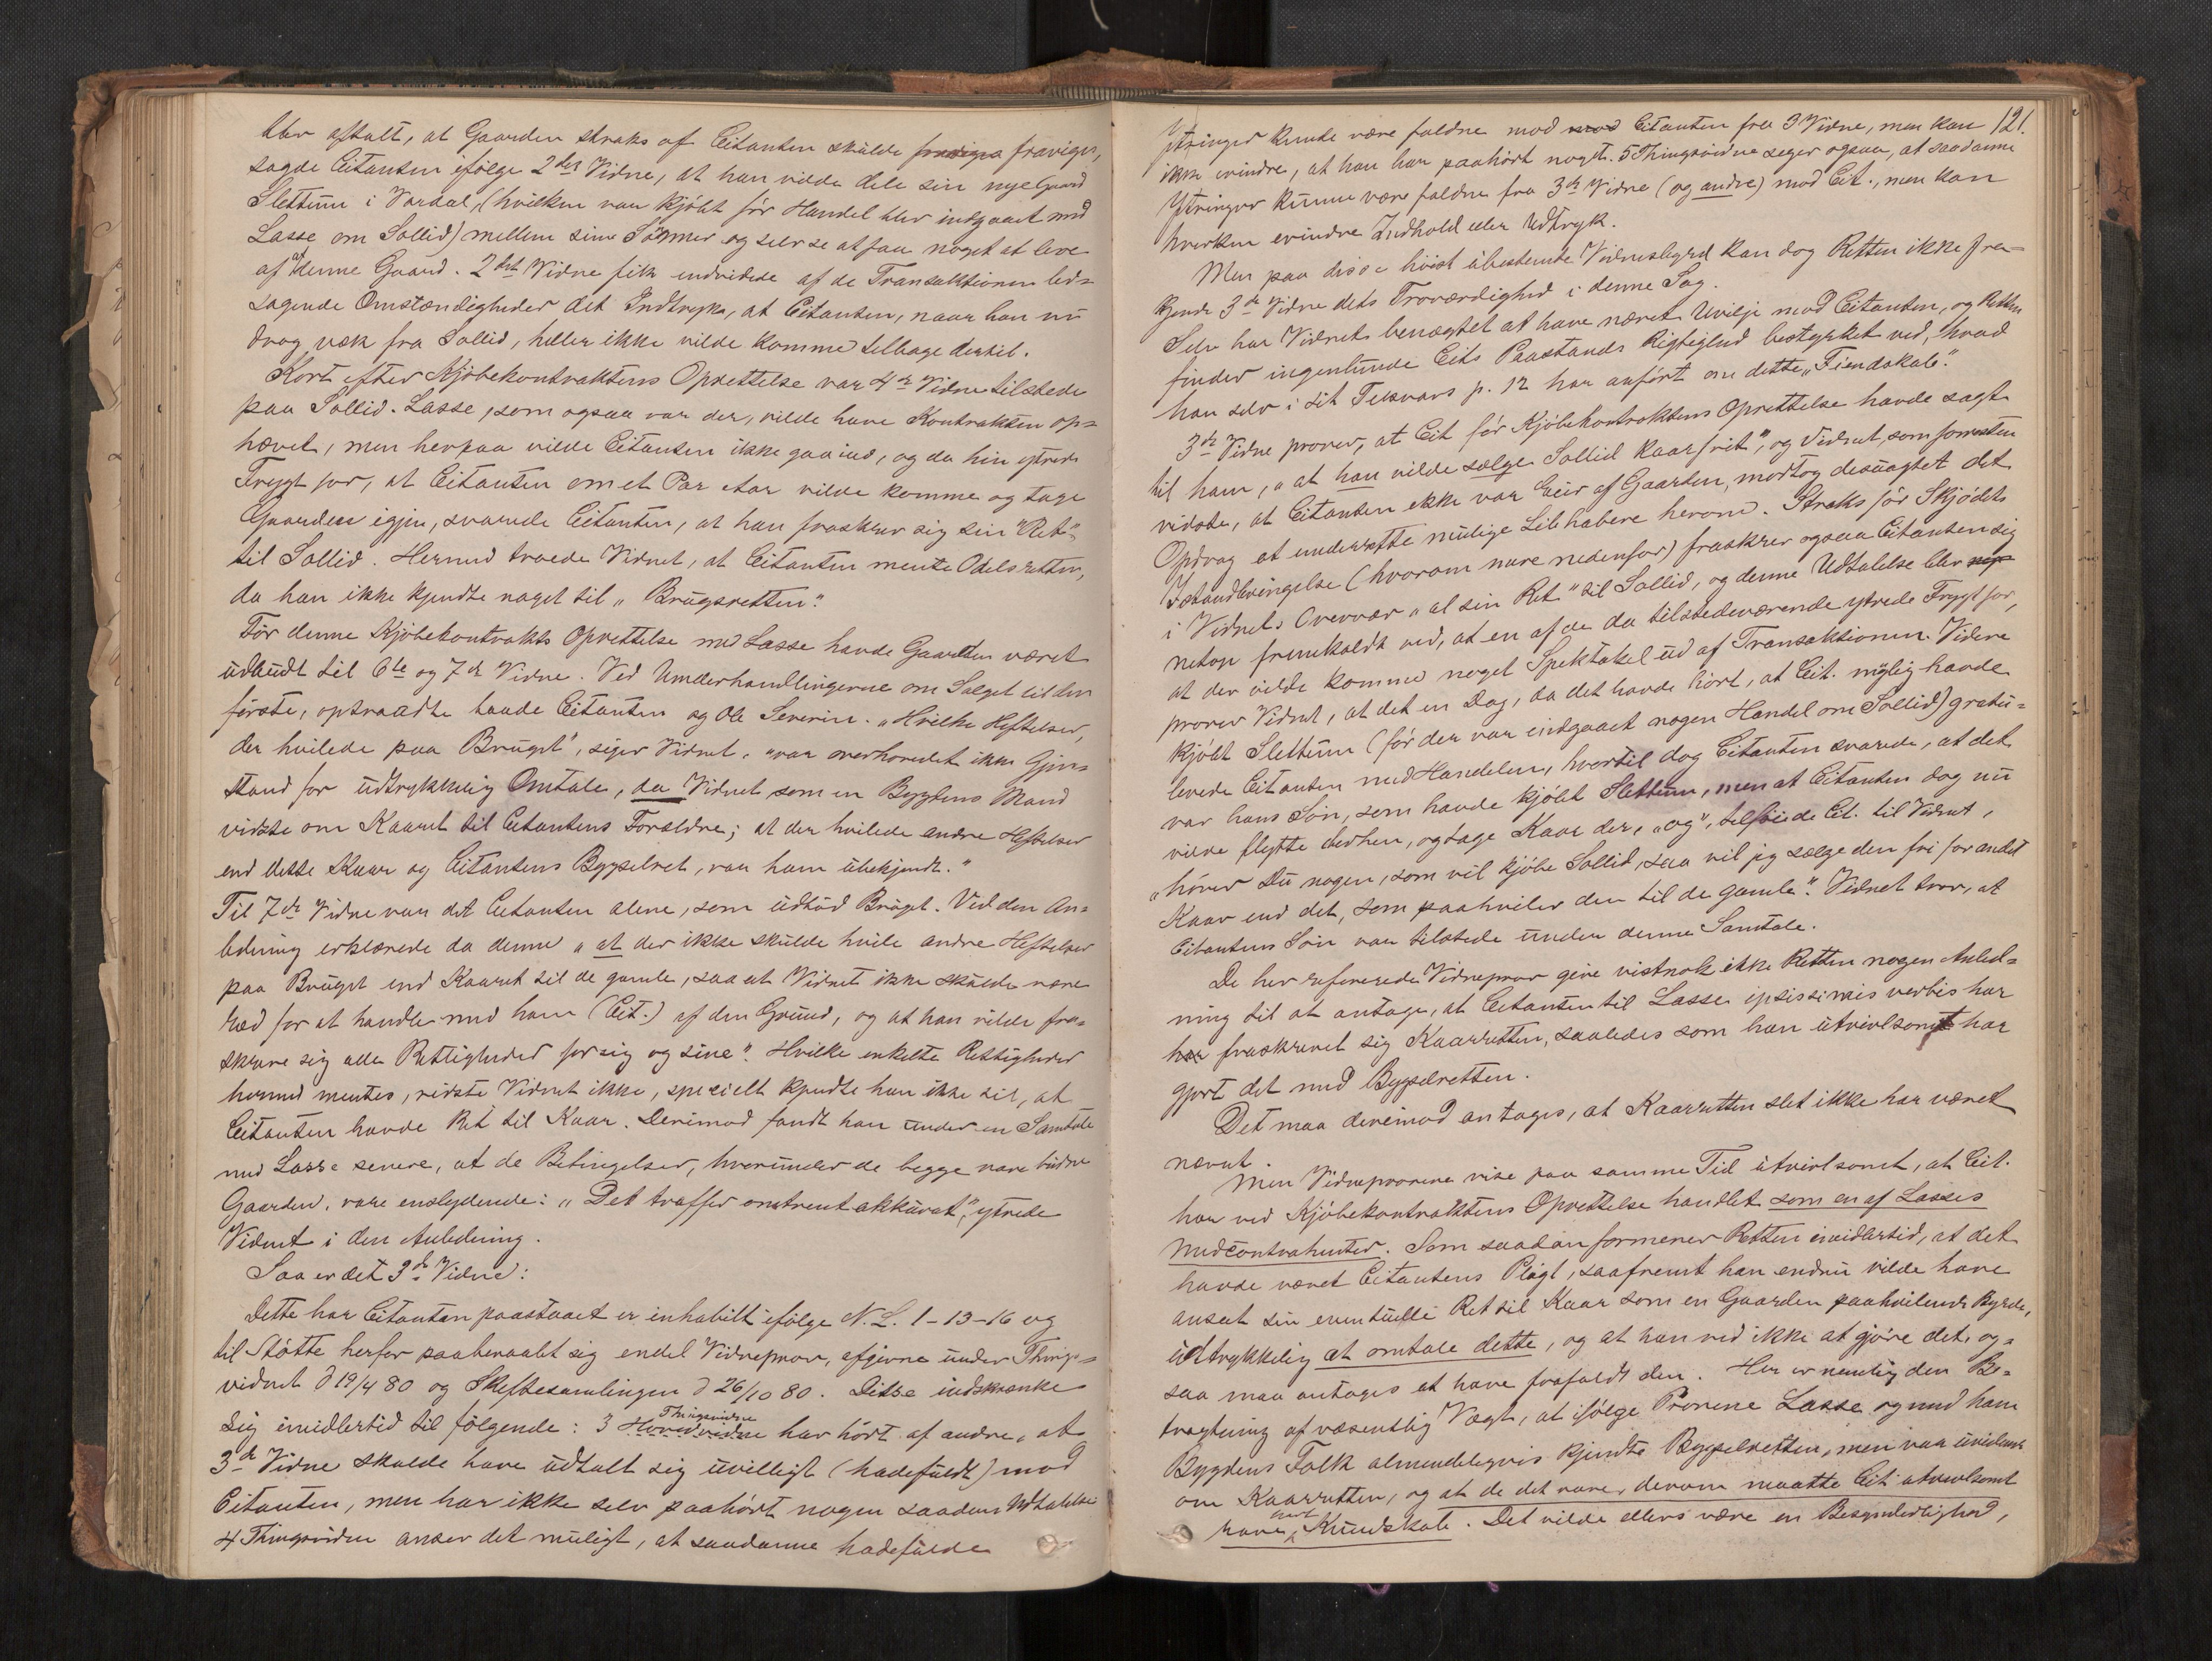 blev aftalt, at Gaarden straks af Citanten skulde fraviges,
sagde Citanten ifølge 2det Vidne, at han vilde dele sin nye Gaard
Slettum i Vardal, (hvilken var kjøbt før Handel blev indgaaet med
Lasse om Sollid) mellem sine Sønner og selv se at faa noget at leve
af af denne Gaard. 2det Vidne fik endvidere af de Transaktionen led-
sagende Omstændigheder det Indtryk, at Citanten, naar han nu
drog væk fra Sollid, heller ikke vilde komme tilbage dertil.
Kort efter Kjøbekontraktens Oprettelse var 4de Vidne tilstede
paa Sollid. Lasse, som ogsaa var der, vilde have Kontrakten op-
hævet, men herpaa vilde Citanten ikke gaa ind, og da hin ytrede
Frygt for, at Citanten om et Par Aar vilde komme og tage
Gaarden igjen, svarede Citanten, at han fraskrev sig sin "Ret"
til Sollid. Hermed troede Vidnet, at Citanten mente Odelsretten,
da han ikke kjendte noget til "Brugsretten".
Før denne Kjøbekontrakts Oprettelse med Lasse havde Gaarden været
udbudt til 6te og 7de Vidne. Ved Underhandlingerne om Salget til den
første, optraadte baade Citanten og Ole Severin. "Hvilke Heftelser,
der hvilede paa Bruget", siger Vidnet, "var overhovedet ikke Gjen-
stand for udtrykkelig Omtale, da Vidnet som en Bygdens Mand
vidste om Kaaret til Citantens Forældre; at der hvilede andre Heftelser
end dette Kaar og Citantens Bygselret, var ham ubekjendt."
Til 7de Vidne var det Citanten alene, som udbød Bruget. Ved den An-
ledning erklærede da denne "at der ikke skulde hvile andre Heftelser
paa Bruget end Kaaret til de gamle, saa at Vidnet ikke skulde være
ræd for at handle med ham (Cit.) af den Grund, og at han vilde fra-
skrive sig alle Rettigheder for sig og sine". Hvilke enkelte Rettigheder
hermed mentes, vidste Vidnet ikke, specielt kjendte han ikke til, at
Citanten havde Ret til Kaar. Derimod fandt han under en Samtale
med Lasse senere, at de Betingelser, hvorunder de begge vare budne
Gaarden, vare enslydende: "Det træffer omtrent akkurat", ytrede
Vidnet i den Anledning.
Saa er det 3de Vidne:
Dette har Citanten paastaaet er inhabilt ifølge N. L. 1-13-16 og
til Støtte herfor paaberaabt sig endel Vidneprov, afgivne under Things-
vidnet d 19/4 80 og Skiftesamlingen d 26/10 80. Disse indskrænke
sig imidlertid til følgende: 3 Hovedvidne Thingsvidne har hørt af andre, at
3de Vidne skulde have udtalt sig uvilligt (hadefuldt) mod
Citanten, men har ikke selv paahørt nogen saadan Udtalelse
4 Thingsvidne anser det muligt, at saadanne hadefulde
121.
Ytringer kunde være faldne mod mod Citanten fra 3 Vidne, men kan
ikke erindre, at han har paahørt noget. 5 Thingsvidne siger ogsaa, at saadanne
Ytringer kunne være faldne fra 3de Vidne (og andre) mod Cit., men kan
hverken erindre Indhold eller Udtryk.
Men paa disse høist ubestemte Vidnesbyrd kan dog Retten ikke fra-
kjende 3de Vidne dets Troværdighed i denne Sag.
Selv har Vidnet benægtet at have næret Uvilje mod Citanten, og Retten
finder ingenlunde Cits Paastands Rigtighed bestyrket ved, hvad
han selv i sit Tilsvars p. 12 har anført om dette "Fiendskab".
3de Vidne prover, at Cit før Kjøbekontraktens Oprettelse havde sagt
til ham, "at han vilde sælge Sollid kaarfrit", og Vidnet, som forresten
vidste, at Citanten ikke var Eier af Gaarden, modtog desuagtet det
Opdrag at underrette mulige Liebhabere herom. Straks før Skjødets
Istandbringelse (hvorom mere nedenfor) fraskrev ogsaa Citanten sig
i Vidnets Overvær "al sin Ret" til Sollid, og denne Udtalelse blev
netop fremkaldt ved, at en af de da tilstedeværende ytrede Frygt for,
at der vilde komme noget Spektakel ud af Transaktionen. Videre
prover Vidnet, at det en Dag, da det havde hørt, at Cit. nylig havde
kjøbt Slettum (før der var indgaaet nogen Handel om Sollid) gratu-
lerede Citanten med Handelen, hvortil dog Citanten svarede, at det
var hans Søn, som havde kjøbt Slettum, men at Citanten dog nu
vilde flytte derhen, og tage Kaar der, "og", tilføiede Cit. til Vidnet,
"hører Du nogen, som vil kjøbe Sollid, saa vil jeg sælge den fri for andet
Kaar end det, som paahviler den til de gamle". Vidnet tror, at
Citantens Søn var tilstede under denne Samtale.
De her refererede Vidneprov give vistnok ikke Retten nogen Anled-
ning til at antage, at Citanten til Lasse ipsissimis verbis har
har fraskrevet sig Kaarretten, saaledes som han utvivlsomt har
gjort det med Bygselretten.
Det maa derimod antages, at Kaarretten slet ikke har været
nævnt.
Men Vidneprovene vise paa samme Tid utvivlsomt, at Cit.
har ved Kjøbekontraktens Oprettelse handlet som en af Lasses
Medcontrahenter. Som saadan formener Retten imidlertid, at det
havde været Citantens Pligt, saafremt han endnu vilde have
anseet sin eventuelle Ret til Kaar som en Gaarden paahvilende Byrde,
udtrykkelig at omtale dette, og at han ved ikke at gjøre det, og-
saa maa antages at have frafaldt den. Her er nemlig den Be-
tragtning af væsentlig Vægt, at ifølge Provene Lasse og med ham
Bygdens Folk almindeligvis kjendte Bygselretten, men vare uvidende
om Kaarretten, og at de det vare, derom maatte Cit. utvivlsomt
have havt Kundskab. Det vilde ellers være en Besynderlighed,